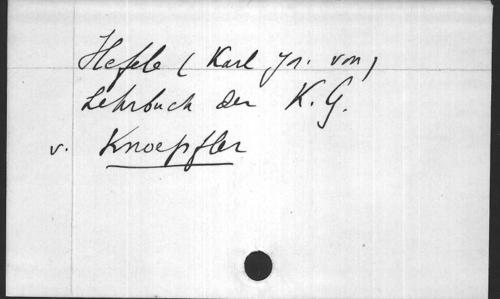 Hefele (Karl Js. von)
Lehrbuch der K.G.
v. Knoepfler